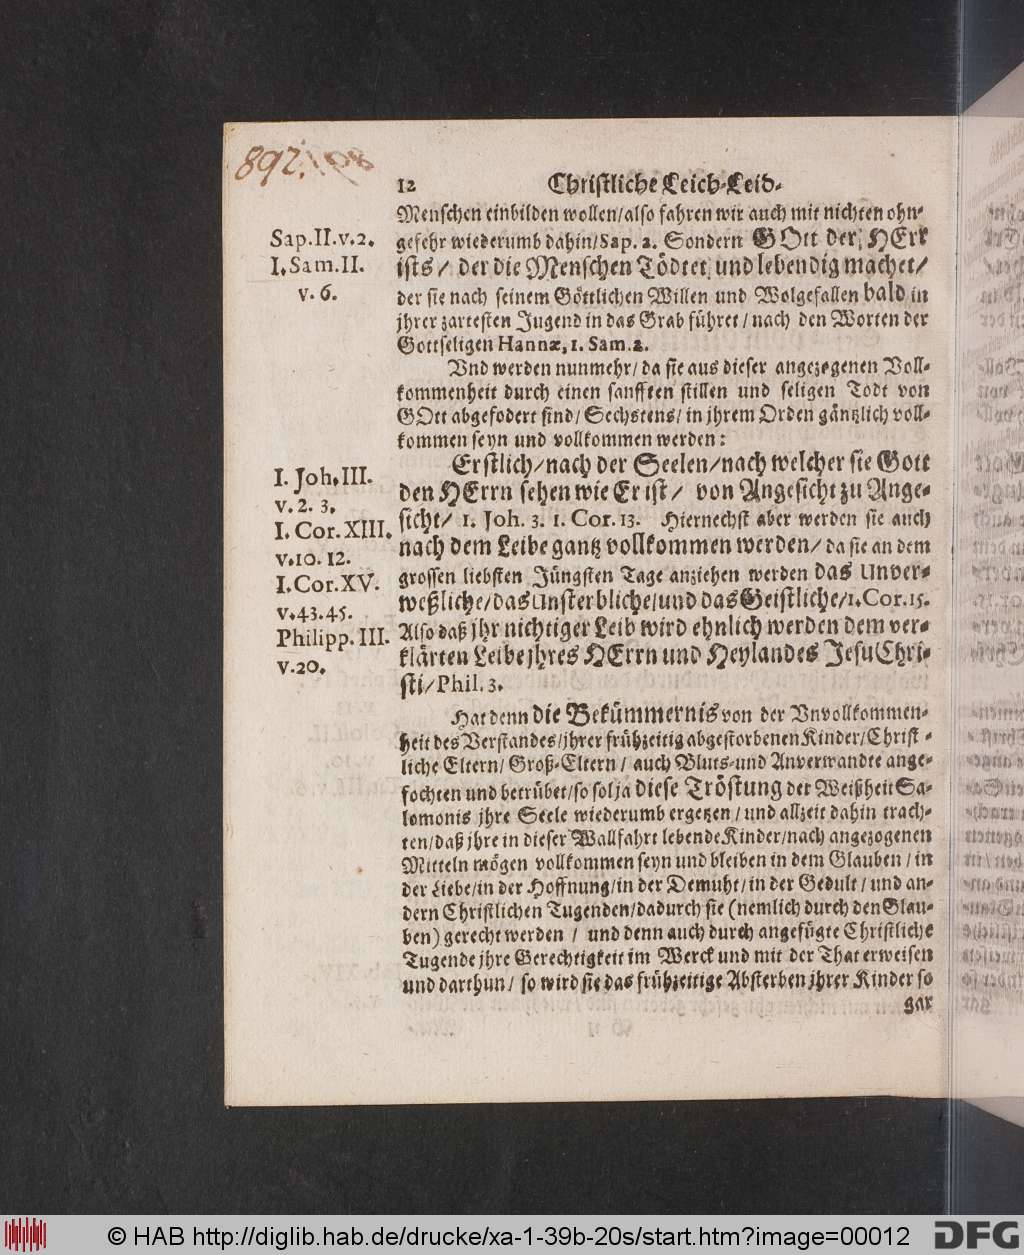 892.
12 Christliche Leich-Leid-
Menschen einbilden wollen/also fahren wir auch mit nichten ohn-
Sap.II.v.2. gefehr wiederumb dahin/Sap. 2. Sondern GOtt der HErr
I.Sam.II. ists/ der die Menschen Tödtet und lebendig machet/
v. 6. der sie nach seinem Göttlichen Willen und Wolgefallen bald in
jhrer zartesten Jugend in das Grab führet / nach den Worten der
Gottseligen Hannæ, 1. Sam. 2.
Vnd werden nunmehr/ da sie aus dieser angezogenen Voll-
kommenheit durch einen sanfften stillen und seligen Todt von
GOtt abgefodert sind/ Sechstens/ in jhrem Orden gäntzlich voll-
kommen seyn und vollkommen werden:
Erstlich/nach der Seelen/nach welcher sie Gott
I. Joh. III. den HErrn sehen wie Er ist/ von Angesicht zu Ange-
v. 2. 3. sicht/ 1. Joh. 3. 1. Cor. 13. Hiernechst aber werden sie auch
I. Cor. XIII. nach dem Leibe gantz vollkommen werden/ da sie an dem
v.10. 12. grossen liebsten Jüngsten Tage anziehen werden das Unver-
I.Cor.XV. weßliche/das Unsterbliche/und das Geistliche/1.Cor.15.
v.43.45. Also daß jhr nichtiger Leib wird ehnlich werden dem ver-
Philipp. III. klärten Leibe jhres HErrn und Heylandes Jesu Chri-
v.20. sti/Phil. 3.
Hat denn die Bekümmernis von der Vnvollkommen-
heit des Verstandes/jhrer frühzeitig abgestorbenen Kinder/Christ-
liche Eltern/ Groß-Eltern / auch Bluts-und Anverwandte ange-
fochten und betrübet/so sol ja diese Tröstung der Weißheit Sa-
lomonis jhre Seele wiederumb ergetzen / und allzeit dahin trach-
ten/daß jhre in dieser Wallfahrt lebende Kinder/nach angezogenen
Mitteln mögen vollkommen seyn und bleiben in dem Glauben / in
der Liebe/in der Hoffnung/in der Demuht/in der Gedult / und an-
dern Christlichen Tugenden/dadurch sie (nemlich durch den Glau-
ben) gerecht werden / und denn auch durch angefügte Christliche
Tugende jhre Gerechtigkeit im Werck und mit der That erweisen
und darthun/ so wird sie das frühzeitige Absterben jhrer Kinder so
gar
© HAB http://diglib.hab.de/drucke/xa-1-39b-20s/start.htm?image=00012
DFG